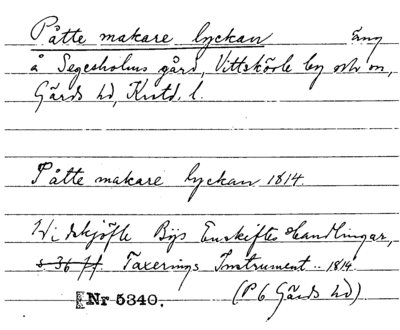 Påtte makare lyckan äng
å Segesholms gård, Vittskövle by och sn,
Gärds hd, Krstd. l.
Påtte makare lyckan 1814.
Widskjöfle Bys Enskiftes Handlingar,
s 36 ff. Taxerings Instrument .. 1814
Nr 5340. (P 6 Gärds hd)